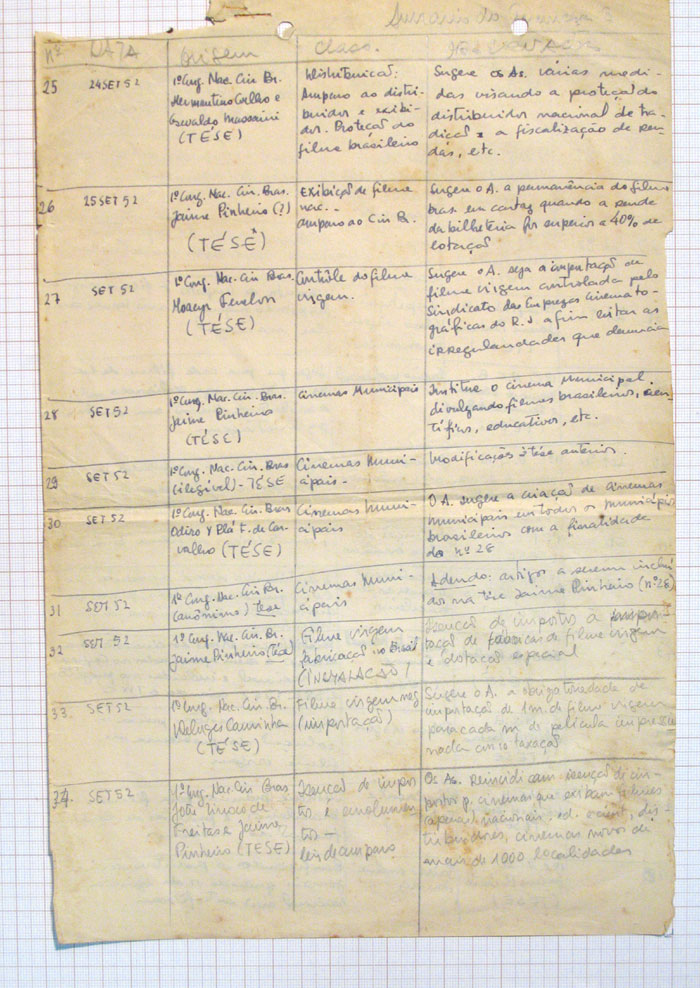 Nº DATA ORIGEM Class. OBSERVAÇÃO
25
24 SET 52
1º Cong. Nac. Cin. Br.
Hermentino Coelho e
Oswaldo Massaini
(TÉSE)
Distribuição:
Amparo ao distri-
buidor e exibi-
dor. Proteção do
filme brasileiro
Sugere os As. várias medi-
das visando a proteção do
distribuidor nacional de tra-
dição e a fiscalização de ren-
das, etc.
26
25 SET 52
1º Cong. Nac. Cin. Bras.
Jaime Pinheiro (?)
(TÉSE)
Exibição de filme
nac. -
amparo ao Cin Br.
Sugere o A. a permanência do filme
bras. em cartaz quando a renda
da bilheteria for superior a 40% de
lotação
27
SET 52
1º Cong. Nac. Cin Bras.
Moacyr Fenelon
(TÉSE)
Contrôle do filme
virgem.
Sugere o A. seja a importação de
filme virgem controlada pelo
Sindicato das Emprezas Cinemato-
gráficas do R. J a fim evitar as
irregularidades que denuncia
28
SET 52
1º Cong. Nac. Cin. Bras.
Jaime Pinheiro
(TÉSE)
Cinemas Municipais
Institue o Cinema Municipal
divulgando filmes brasileiros, cien-
tíficos, educativos, etc.
29
SET 52
1º Cong. Nac. Cin. Bras
(ilegível) - TÉSE
Cinemas Muni-
cipais -
Modificações à tése anterior.
30
SET 52
1º Cong. Nac. Cin. Bras
F. de Car-
valho (TÉSE)
Cinemas Muni-
cipais
O A. sugere a criação de cinemas
municipais em todos os municípios
brasileiros com a finalidade
do nº 28
31
SET 52
1º Cong. Nac. Cin. Br.
(anônimo) tese
Cinemas Muni-
cipais
Adendo: artigos a serem incluí-
dos na tése Jaime Pinheiro (nº 28)
32
SET 52
1º Cong. Nac. Cin. Br.
Jaime Pinheiro (tése)
Filme virgem
fabricação no Brasil
(INSTALAÇÃO)
Isenção de impostos a
tação de fábricas de filme virgem
e dotação especial
33.
SET 52
1º Cong. Nac. Cin. Bras.
(TÉSE)
Filme virgem neg
(importação)
Sugere o A. a obrigatoriedade de
importação de 1 m. de filme virgem
para cada m. de película impressio-
nada
34.
SET 52
1º Cong. Nac. Cin Bras
João
Freitas e Jaime
Pinheiro (TESE)
Isenção de impos
tos e emolumen
tos -
leis de amparo
Os As. Reivindicam isenção de im-
postos p. cinemas que exibam filmes
(apenas) nacionais, dis-
tribuidores, cinemas novos de
mais de 1000 localidades